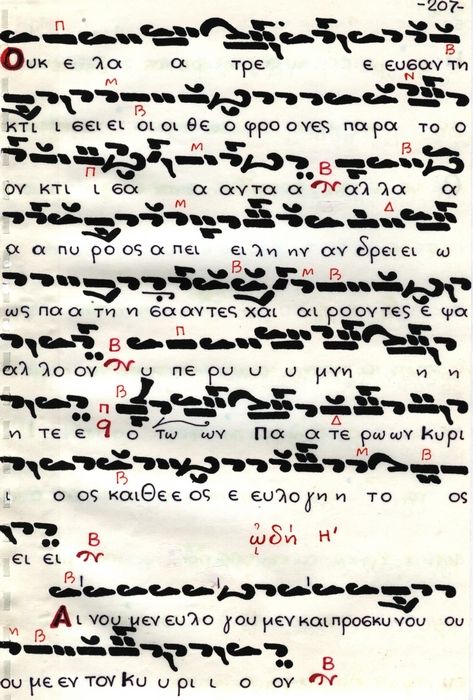 -207-
Ουκ ε λα α τρε ε ευσαντη
κτι σει ει οι οι θε ο φρο ο νες παρα το ο
ον κτι ι σα α αντα α αλλα α
α α πυ ρο ος α πει ει λη ην αν δρει ει ω
ως πα α τη η σα αντες χαι αι ρο οντες ε ψα
αλ λο ον υ πε ρυ υ υ μνη η η
η τε ε ο τω ων Πα α τε ρω ων Κυ ρι
ι ο ος και Θε ε ος ε ευ λο γη η το ος
ει ει
ᾠδή Η'
Αι νου μεν ευλο γου μεν και προσκυ νου ου
ου με εν τον Κυ υ ρι ι ο ον